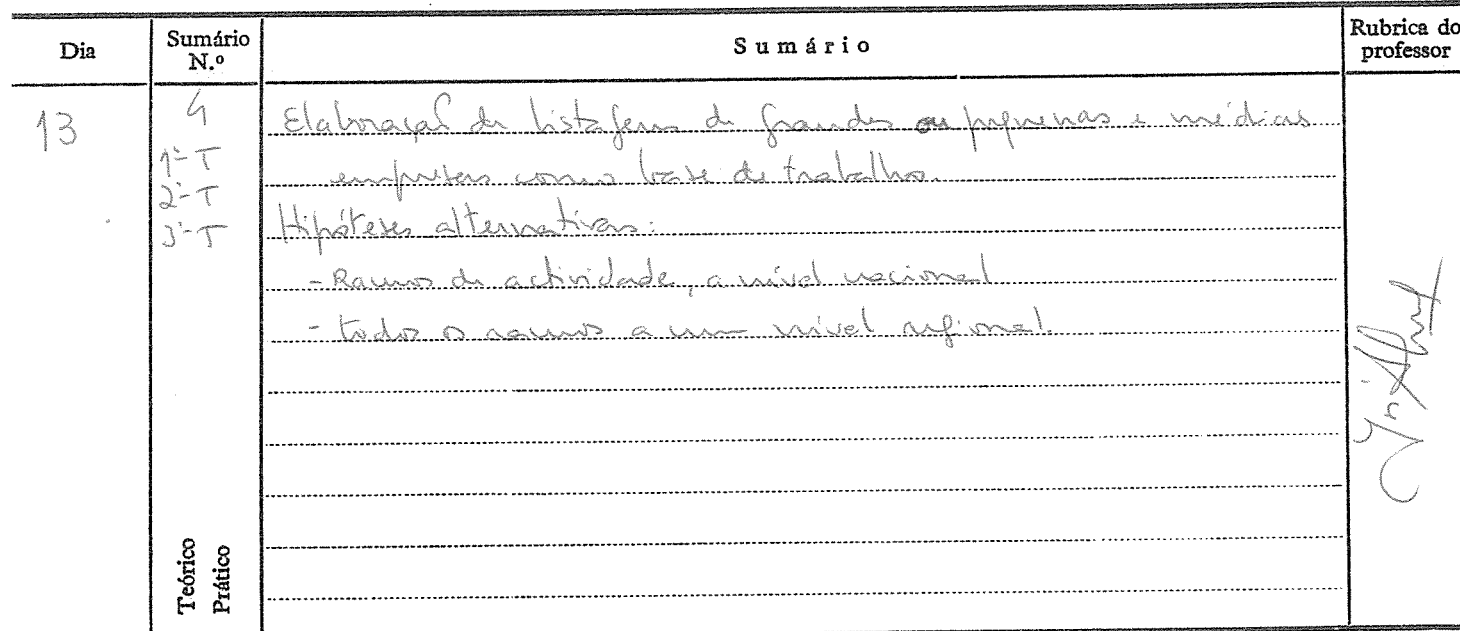 Dia
Sumário N.º
Sumário
Rubrica do professor
13
4
1º-T
2º-T
3º-T
Elaboração de listagens de grandes ou pequenas e médias
empresas como base de trabalho.
Hipóteses alternativas:
- Ramos de actividade, a nível nacional
- todos os ramos a um nível regional.
Teórico
Prático